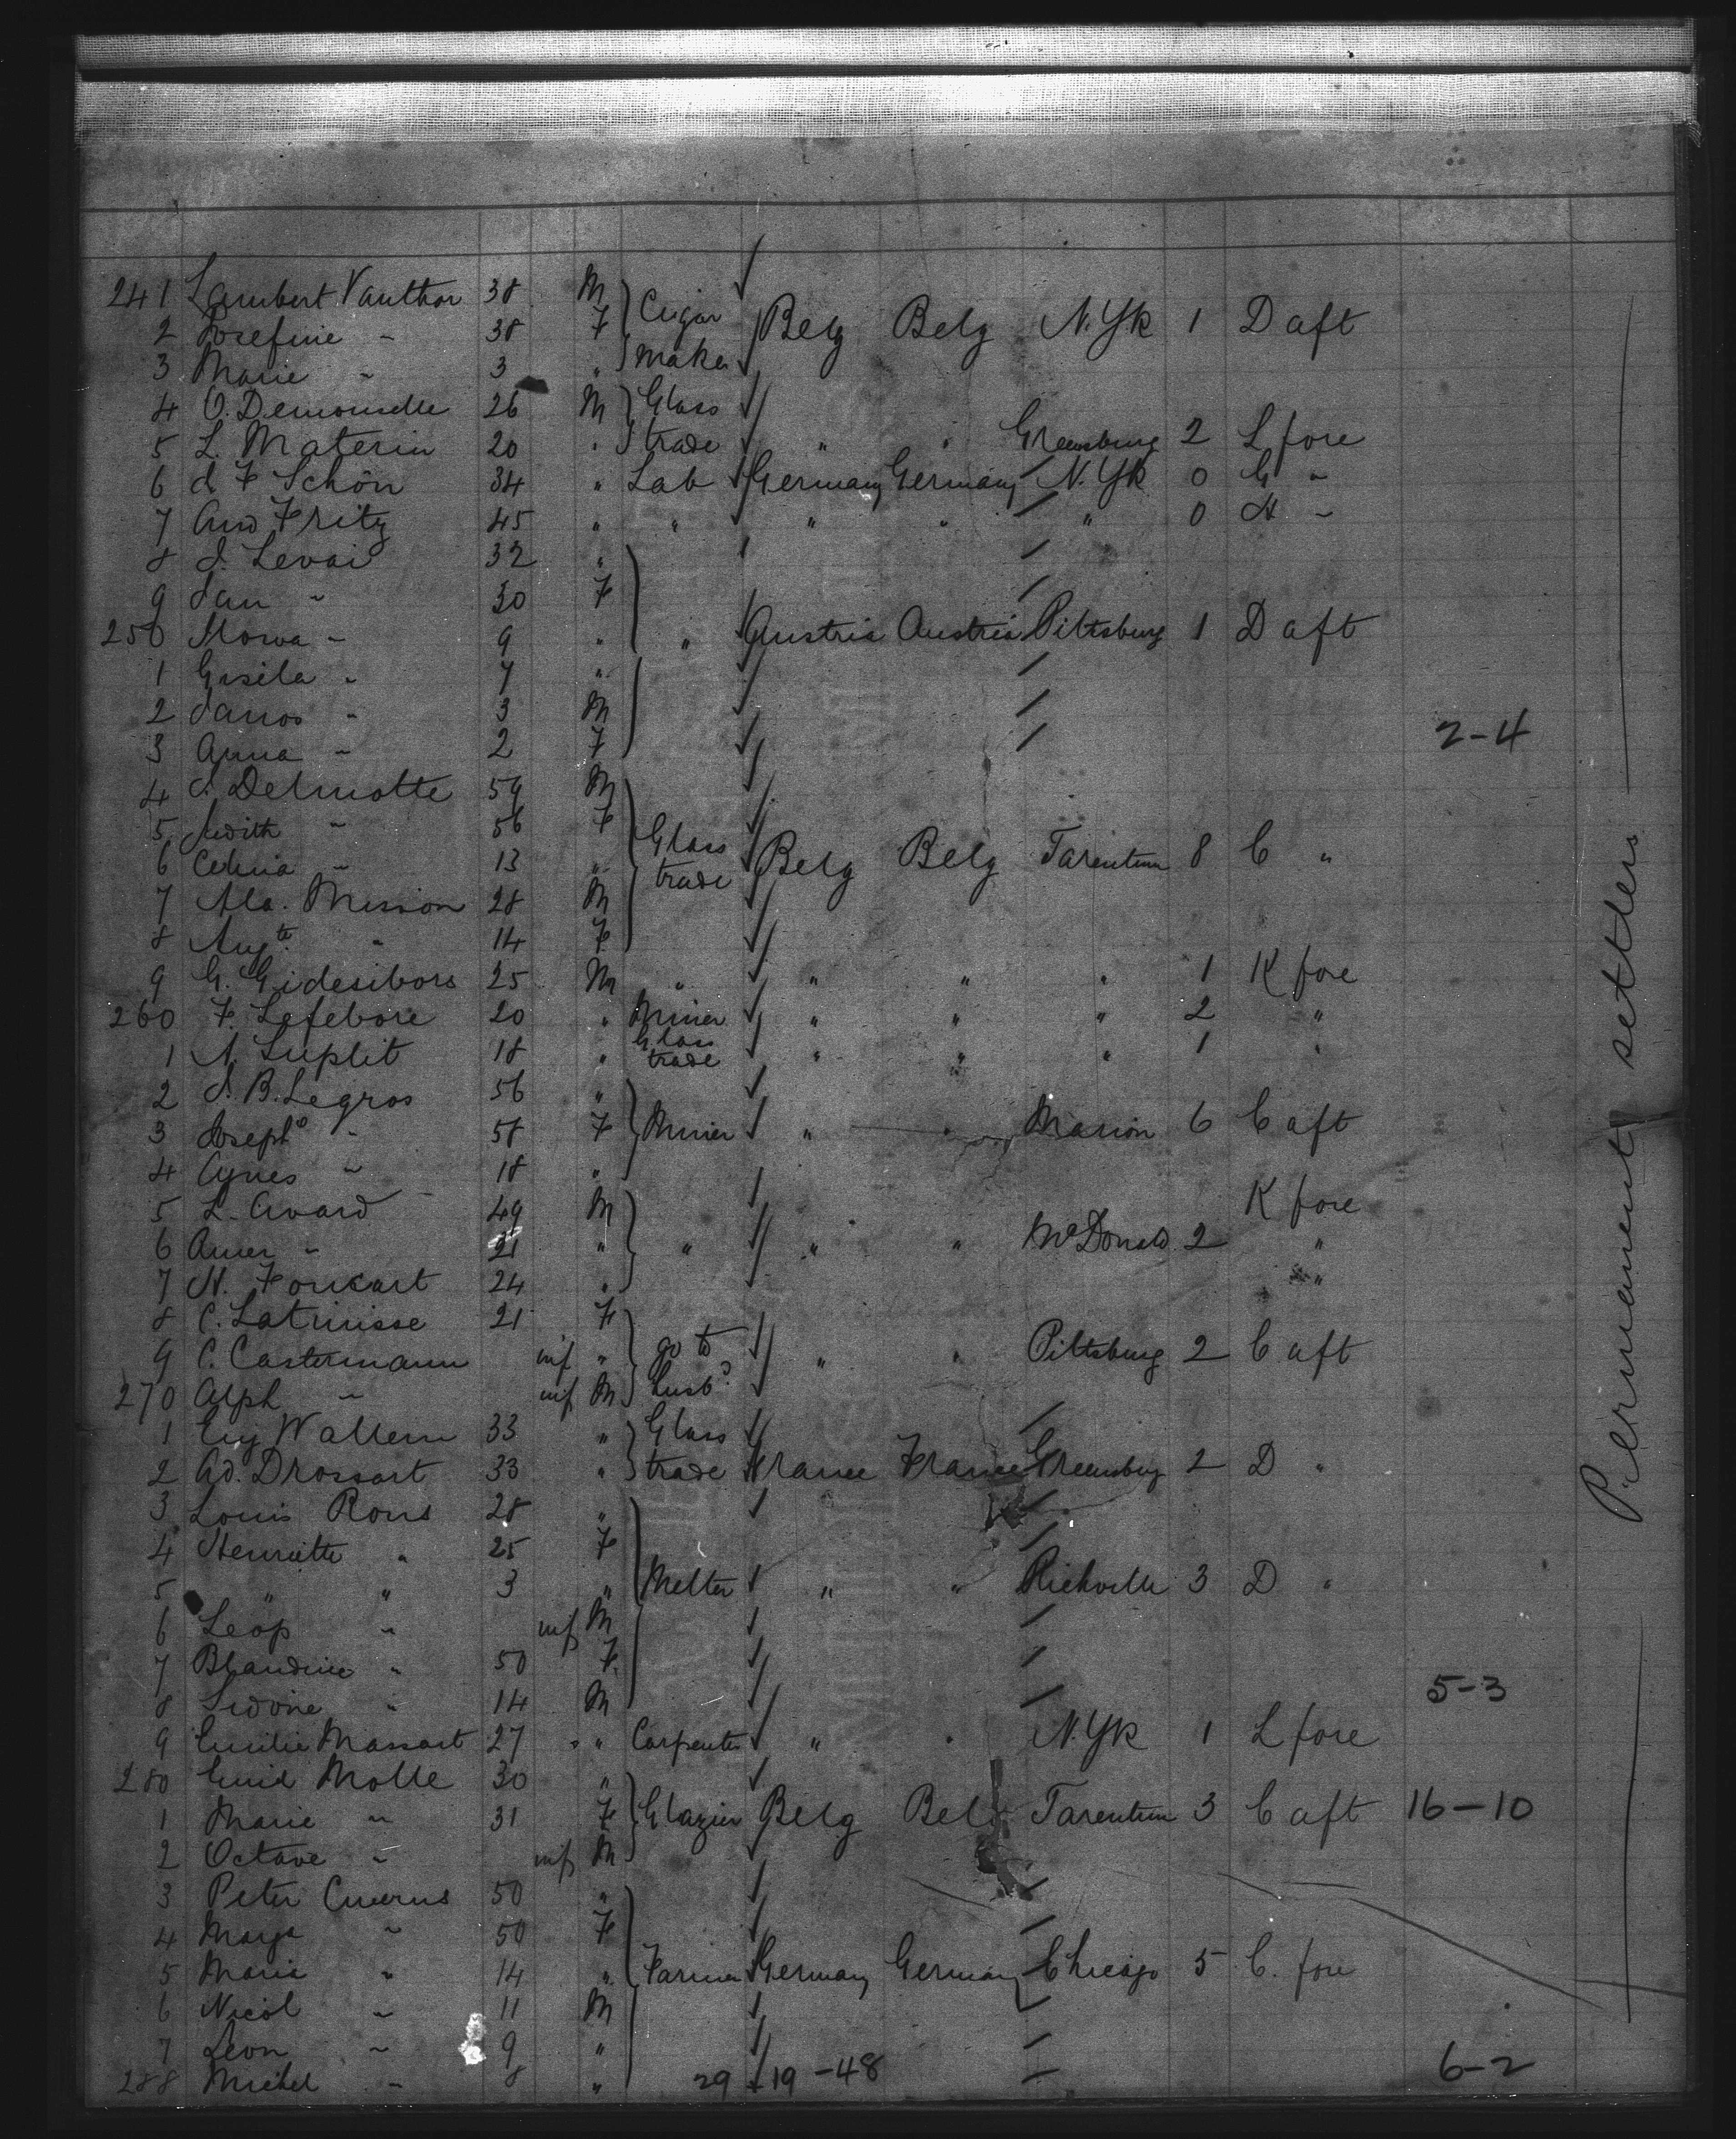 241 Lambert Vanthor 38 M Cigar
2 Josefine " 38 F maker Belg Belg N. Yk 1 D aft
3 Marie " 3 "
4 O. Demouselle 26 M Glass
5 L. Materin 20 " trade " " Greensburg 2 L fore
6 J F Schön 34 " Lab Germany Germany N. Yk 0 G "
7 And Fritz 45 " " " " " 0 H "
8 J. Levai 32 "
9 Jan " 30 F
250 " 9 " " Austria Austria Pittsburg 1 D aft
1 Gisela " 7 "
2 Janos " 3 M
3 Anna " 2 F 2-4
4 Delmotte 59 M
5 Judith " 56 F
6 Celina " 13 " Glass trade Belg Belg Tarentum 8 C "
7 Mission 28 M
8 Augte " 14 F
9 G. 25 M " " " " 1 K fore
260 F. Lefebore 20 " Miner " " " 2 "
1 Suplit 18 " Glass trade " " " 1 "
2 J. B. Legros 56 "
3 Josephe " 58 F Miner " " Marion 6 C aft
4 Agnes " 18 "
5 L. Avard 49 M K fore
6 " 21 " " " " McDonald 2 "
7 N. Foucart 24 " "
8 C. Latinisse 21 F
9 C. Castermann inf " go to " " Pittsburg 2 C aft
270 Alph " inf M husbd
1 Eug Wallem 33 " Glass
2 Ad. Drossart 33 " trade France France Greensburg 2 D "
3 Louis Rons 28 "
4 Henriette " 25 F
5 " " 3 " Melter " " 3 D "
6 Leop " inf M
7 Blandine " 50 F
8 Sidone " 14 M 5-3
9 Emilie Massart 27 " " Carpenter " " N. Yk 1 L fore
280 Emil Molle 30 "
1 Marie " 31 F Glazier Belg Belg Tarentum 3 C aft 16-10
2 Octave " inf M
3 Peter 50 "
4 Marga " 50 F
5 Maria " 14 " Farmer Germany Germany Chicago 5 C. fore
6 Nicol " 11 M
7 Leon " 9 "
288 Michel " 8 " 29 + 19 - 48 6-2
Permanent settlers